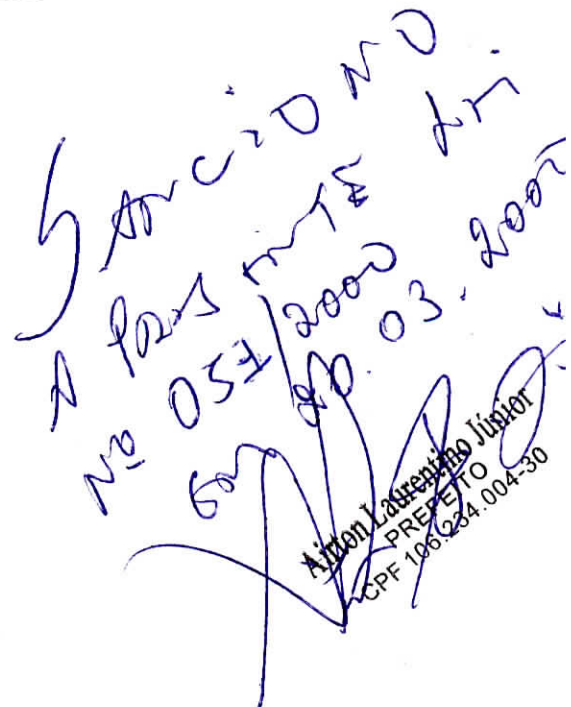 SANCIONO
A PRESENTE LEI
Nº 057/2000
Em 20.03.2000
Airton Laurentino Júnior
PREFEITO
CPF 106.234.004-30